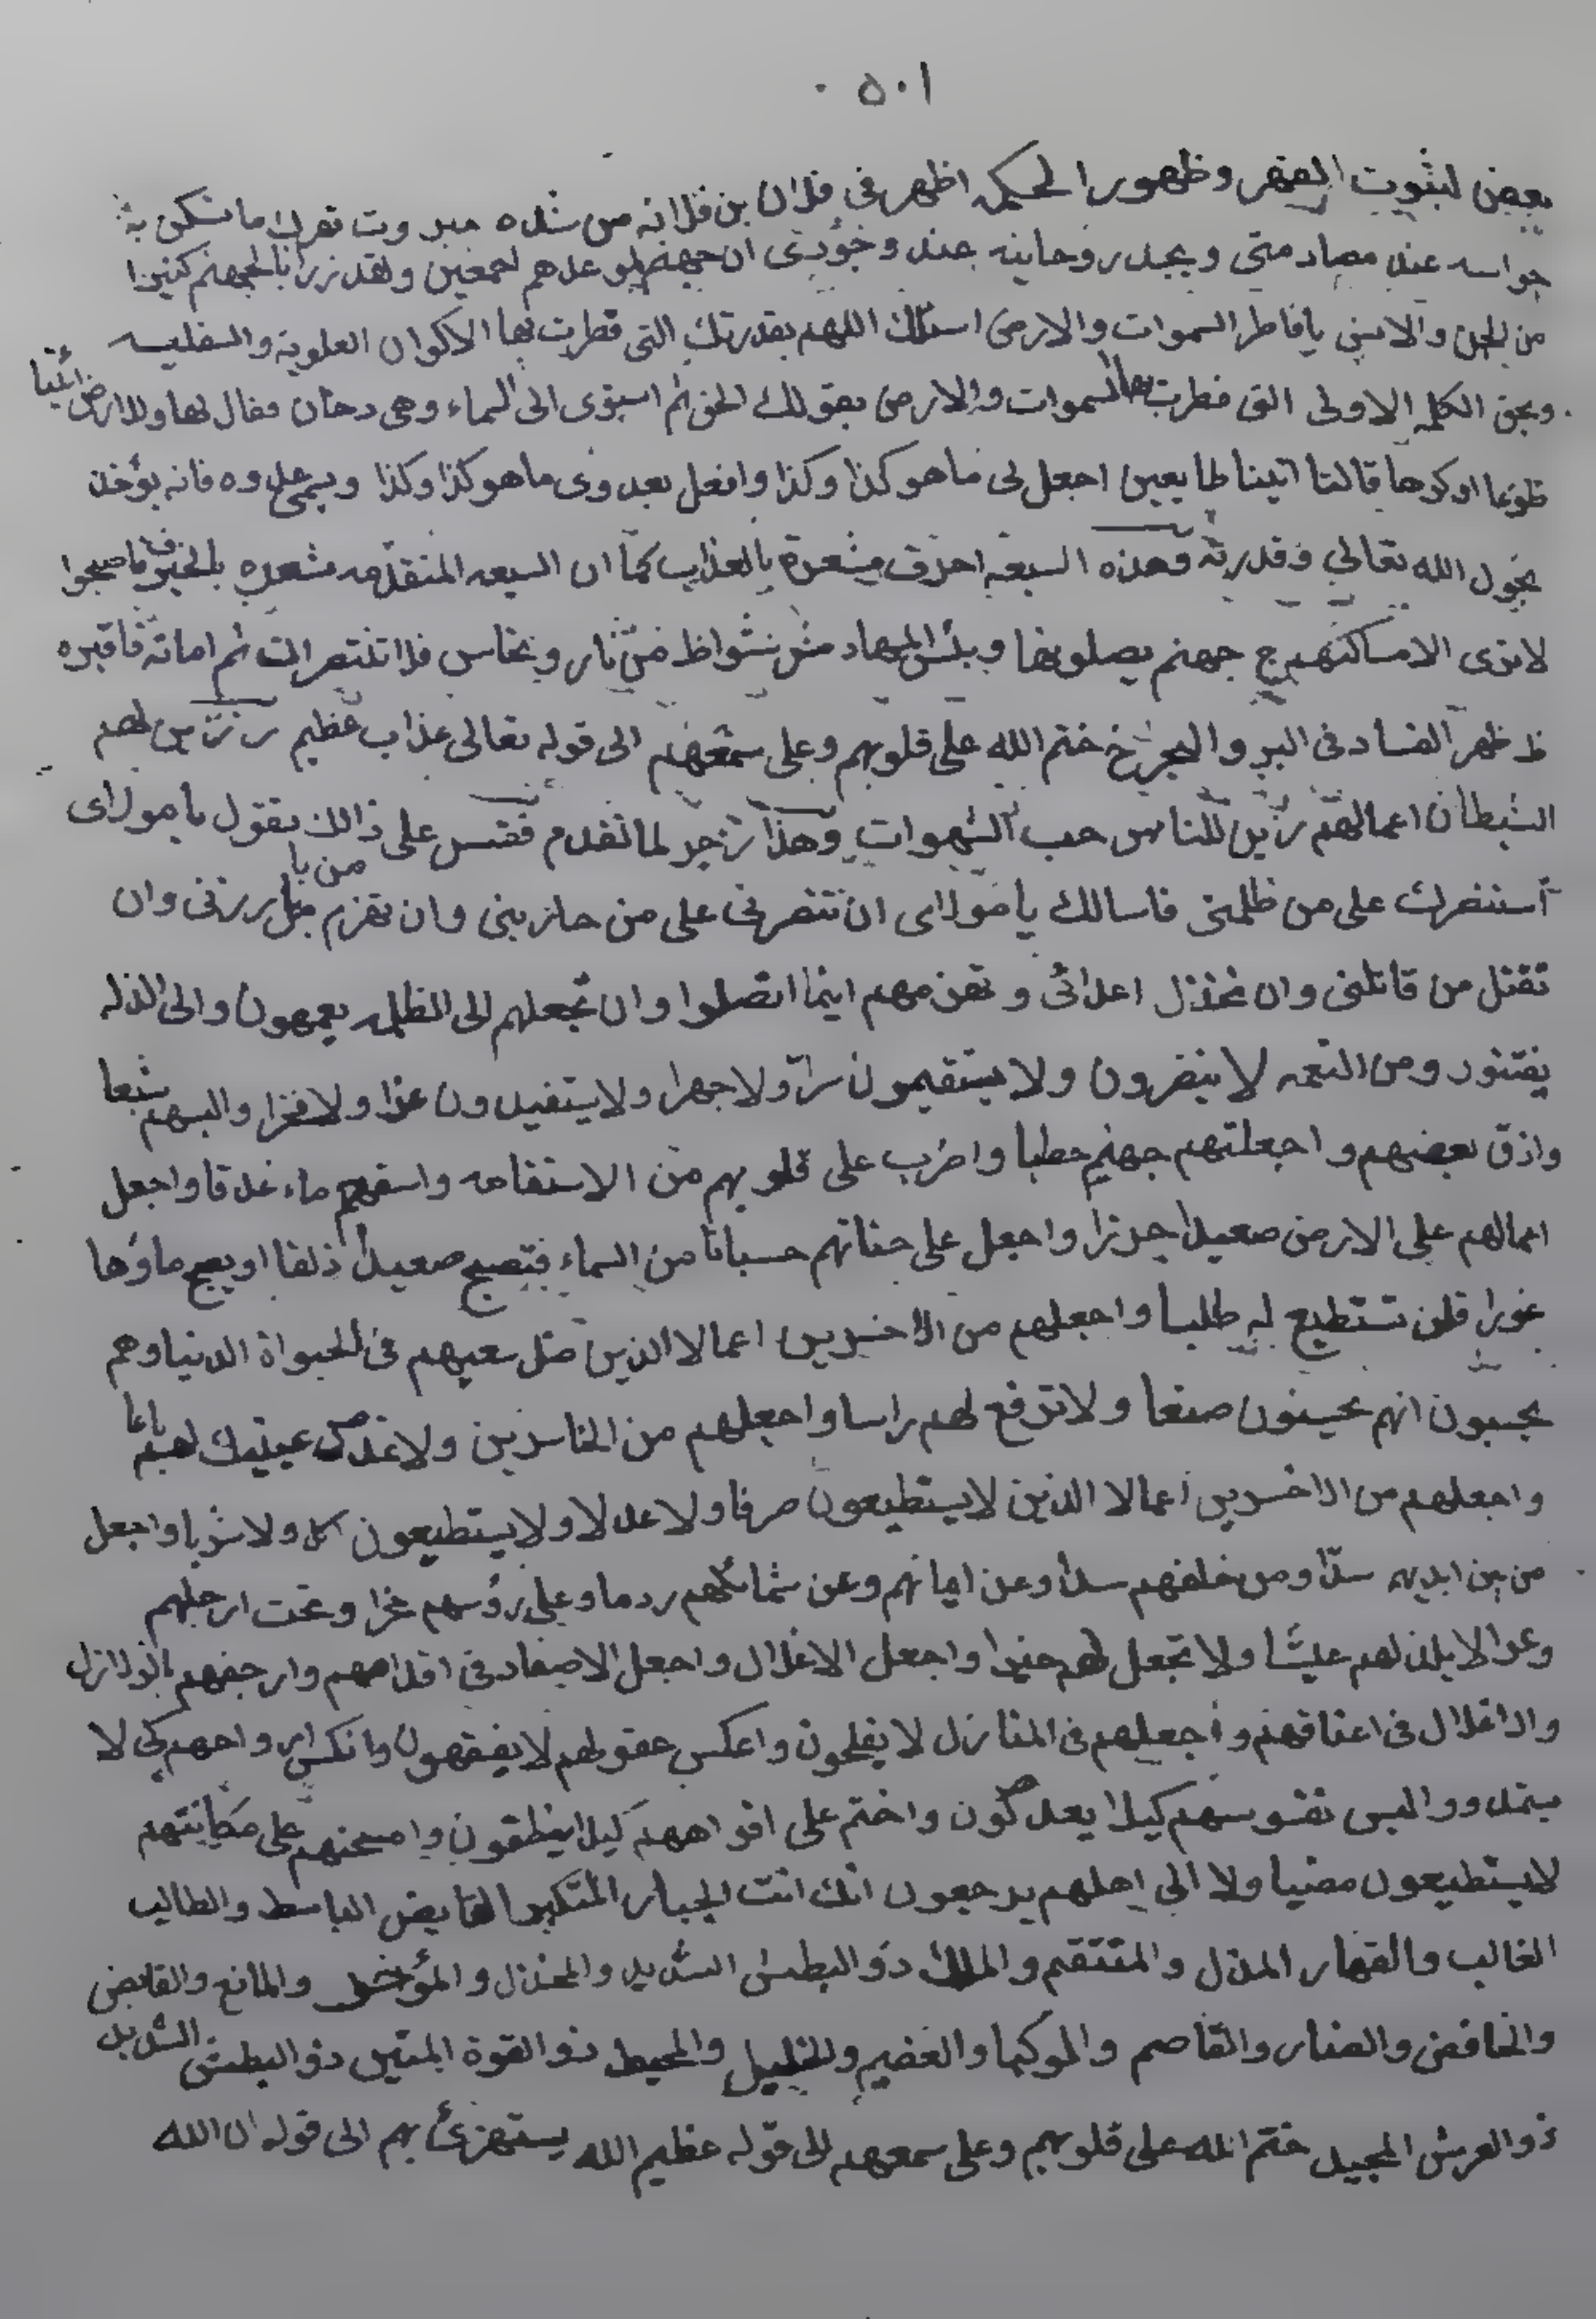 ٥٠١
بعض لثبوت القهر وظهور الحكمه اظهر فى فلان بن فلانه من شده جبروت قهرك ما تسكن به
حواسه عند مصادمتى وبجد روحانيه عند وان جهنم لموعدهم اجمعين ولقد ذرانا لجهنم كثيرا
من الجن والانس يا فاطر السموات والارض اسئلك اللهم بقدرتك التى فطرت بها الاكوان العلويه والسفليه
وبحق الكلمه الاولى التى فطرت بها السموات والارض بقولك الحق ثم استوى الى السماء وهى دخان فقال لها وللارض ائتيا
طوعا اوكرها قالتا اتينا طايعين اجعل لى ما هو كذا وكذا وافعل بعدوى ما هو كذا وكذا فانه يؤخذ
بحول الله تعالي وقدرته وهذه السبعه احرف مشعرة بالعذاب كما ان السبعه المتقدمه مشعره بالخير ف فاصبحوا
لا ترى الا مساكنهم ج جهنم يصلونها وبئس المهاد ش شواظ من نار ونحاس فلا تنتصران ث ثم اماته فاقبره
ظ ظهر الفساد فى البر والبحر خ ختم الله على قلوبهم وعلى سمعهم الى قوله تعالى عذاب عظيم ز زين لهم
الشيطان اعمالهم زين للناس حب الشهوات وهذا زجر لما تقدم فقس على ذالك تقول يا مولاى
أستنصرك على من ظلمنى فاسالك يا مولاى ان تنصرنى على من حازبنى وان تهزم من بارزنى وان
تقتل من قاتلنى وان تخذل اعدائى وتهزمهم اينما اتصلوا وان تجعلهم الى الظلمه يعمهون والى الذله
ومن النعمه لا ينفرون ولا يستقيمون سرا ولا جهرا ولا يستفيدون عزا ولا فخرا والبسهم شيعا
واذق بعضهم واجعلتهم جهنم حطبا واضرب على قلوبهم من الاستقامه واسقهم ماء غدقا واجعل
اعمالهم على الارض صعيدا جرزا واجعل على جناتهم حسبانا من السماء فتصبح صعيدا زلقا او يصبح ماؤها
غورا فلن تستطيع له طلبا واجعلهم من الاخسرين اعمالا الذين ضل سعيهم فى الحيواة الدنيا وهم
يحسبون انهم يحسنون صنعا ولا ترفع لهم راسا واجعلهم من الخاسرين ولا
واجعلهم من الاخسرين اعمالا الذين لا يستطيعون صرفا ولا عدلا ولا يستطيعون اكلا ولا شربا واجعل
من بين ايديهم سدا ومن خلفهم سدا وعن ايمانهم وعن شمائلهم ردما وعلى رؤسهم وتحت ارجلهم
وعرا لا يلذ لهم عليشا ولا تجعل لهم خيرا واجعل الاغلال واجعل الاصفاد فى اقدامهم وارجفهم بالزلازل
والاغلال فى اعناقهم واجعلهم فى المنازل لا يفلحون واعكس عقولهم لا يفقهون كى لا
نفوسهم كيلا واختم على افواههم كيلا ينطقون وامسخهم على مكانتهم
لا يستطيعون مضيا ولا الى اهلهم يرجعون انك انت الجبار المتكبر القابض الباسط والطالب
الغالب والقهار المذل والمنتقم والملك ذو البطش الشديد والمخذل والمؤخر والمانع والقابض
والخافض والضار والقاصم والمحيط ذو القوة المتين ذو البطش الشديد
ذو العرش المجيد ختم الله على قلوبهم وعلى سمعهم الى قوله عظيم الله يستهزئ بهم الى قوله ان الله